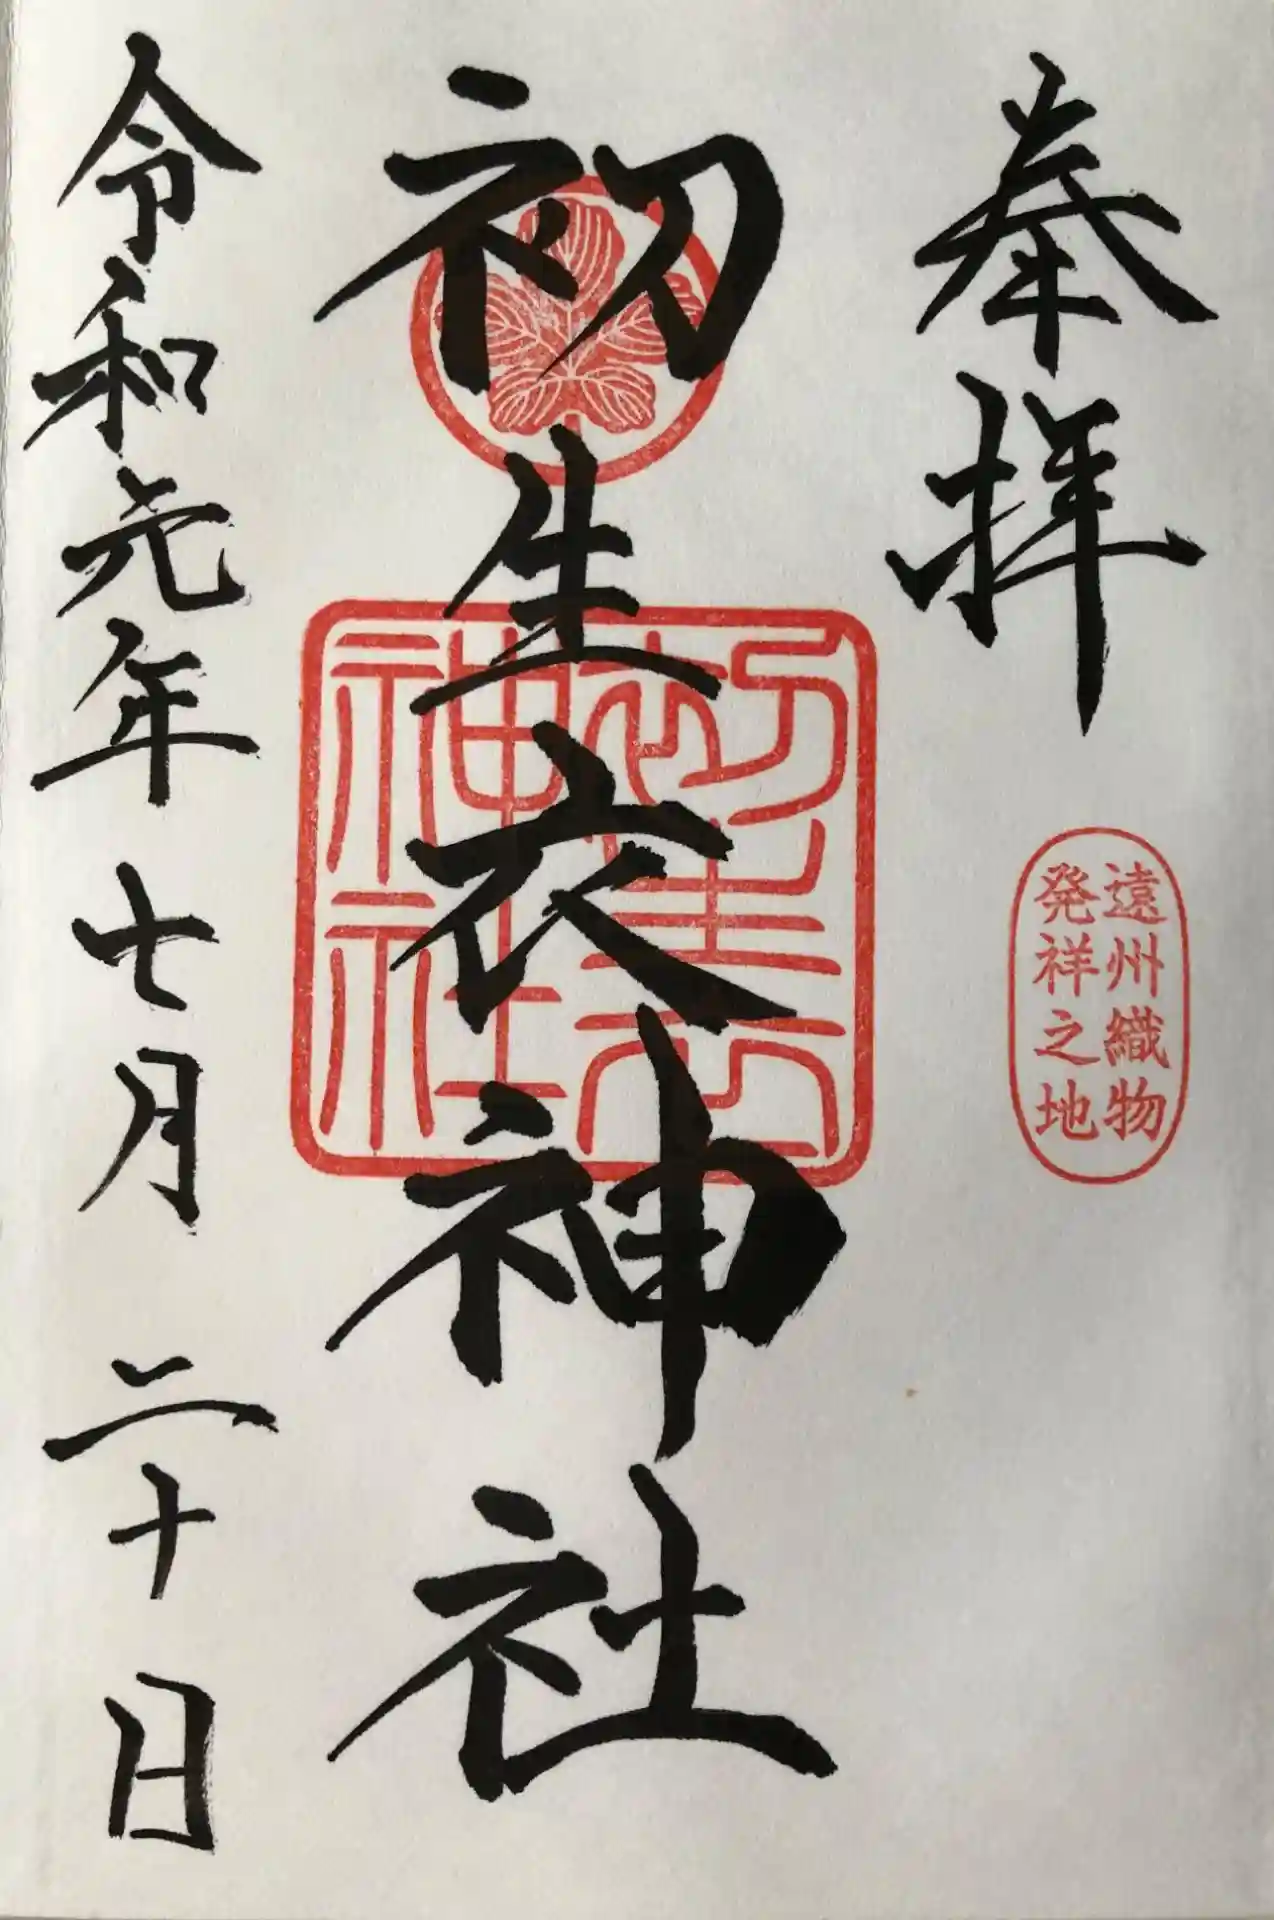 奉拝
遠州織物
発祥之地
初生衣神社
初生衣
神社
令和元年七月二十日